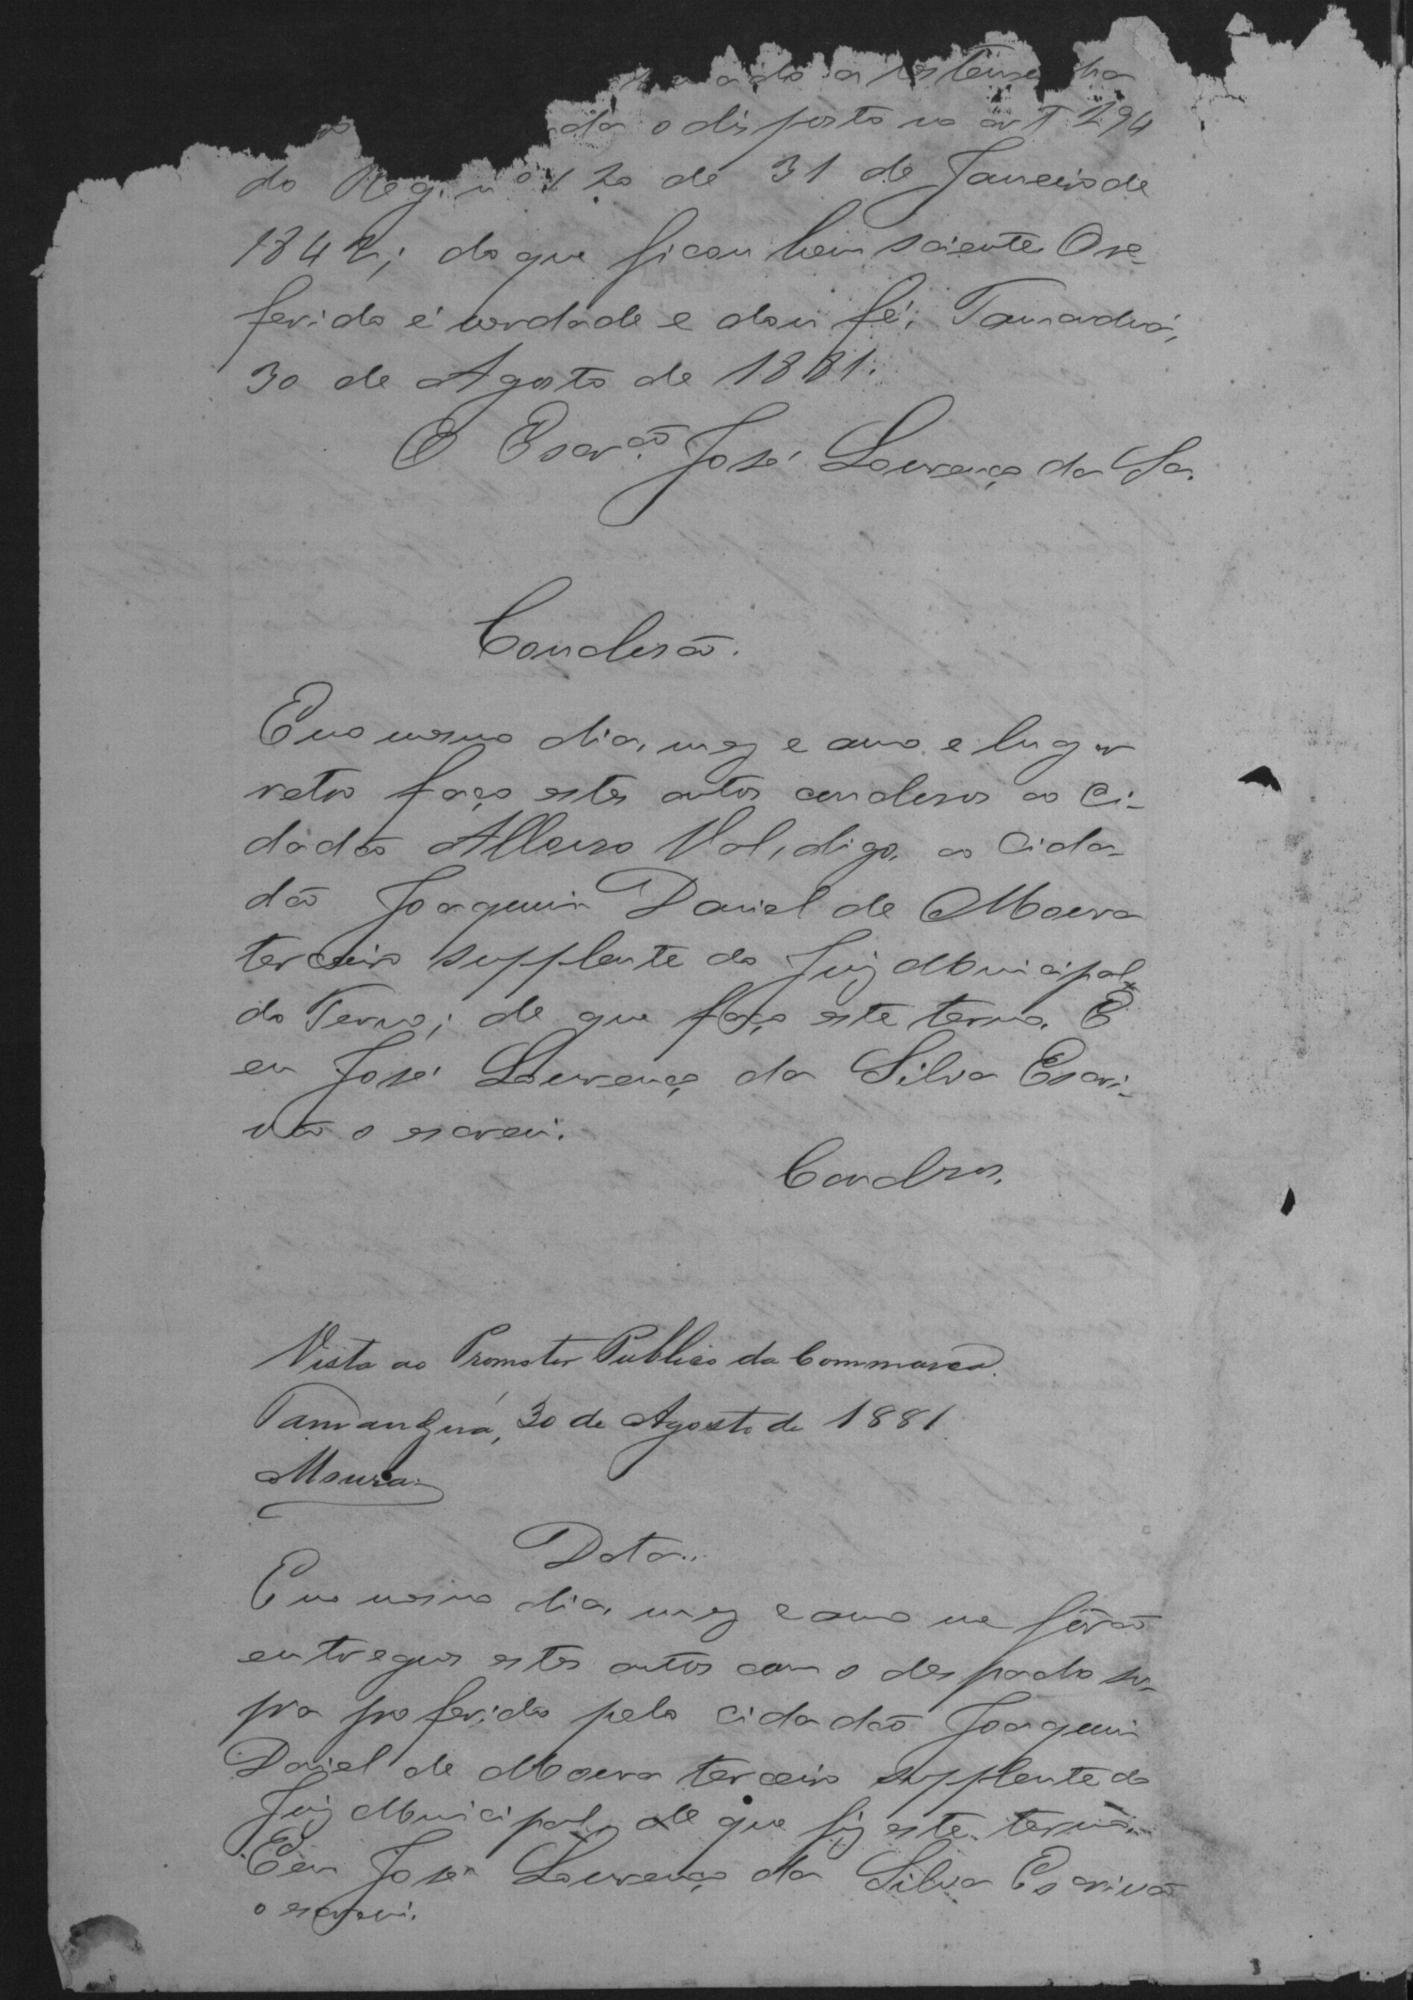 a testemunha
da o disposto no art 294
do Reg. nº 120 de 31 de Janeiro de
1842; do que ficou bem sciente O re-
ferido é verdade e dou fé; Tamanduá,
30 de Agosto de 1881.
O Escr.ão José Lourenço da Sa.
Conclusão.
E no mesmo dia, mez e anno e lugar
retro faço estes autos conclusos ao Ci-
dadão Affonso Val, digo, ao Cida-
dão Joaquim Daniel de Moura
terceiro supplente do Juiz Municipal
do Termo; de que faço este termo. E
eu José Lourenço da Silva Escri-
vão o escrevi.
Conclusos.
Vista ao Promotor Publico da Commarca.
Tamanduá, 30 de Agosto de 1881
Moura
Data..
E no mesmo dia, mez e anno me forão
entregues estes autos com o despacho su-
pra proferido pelo cidadão Joaquim
Daniel de Moura terceiro supplente do
Juiz Municipal, de que fiz este termo.
E eu José Lourenço da Silva Escrivão
o escrevi.